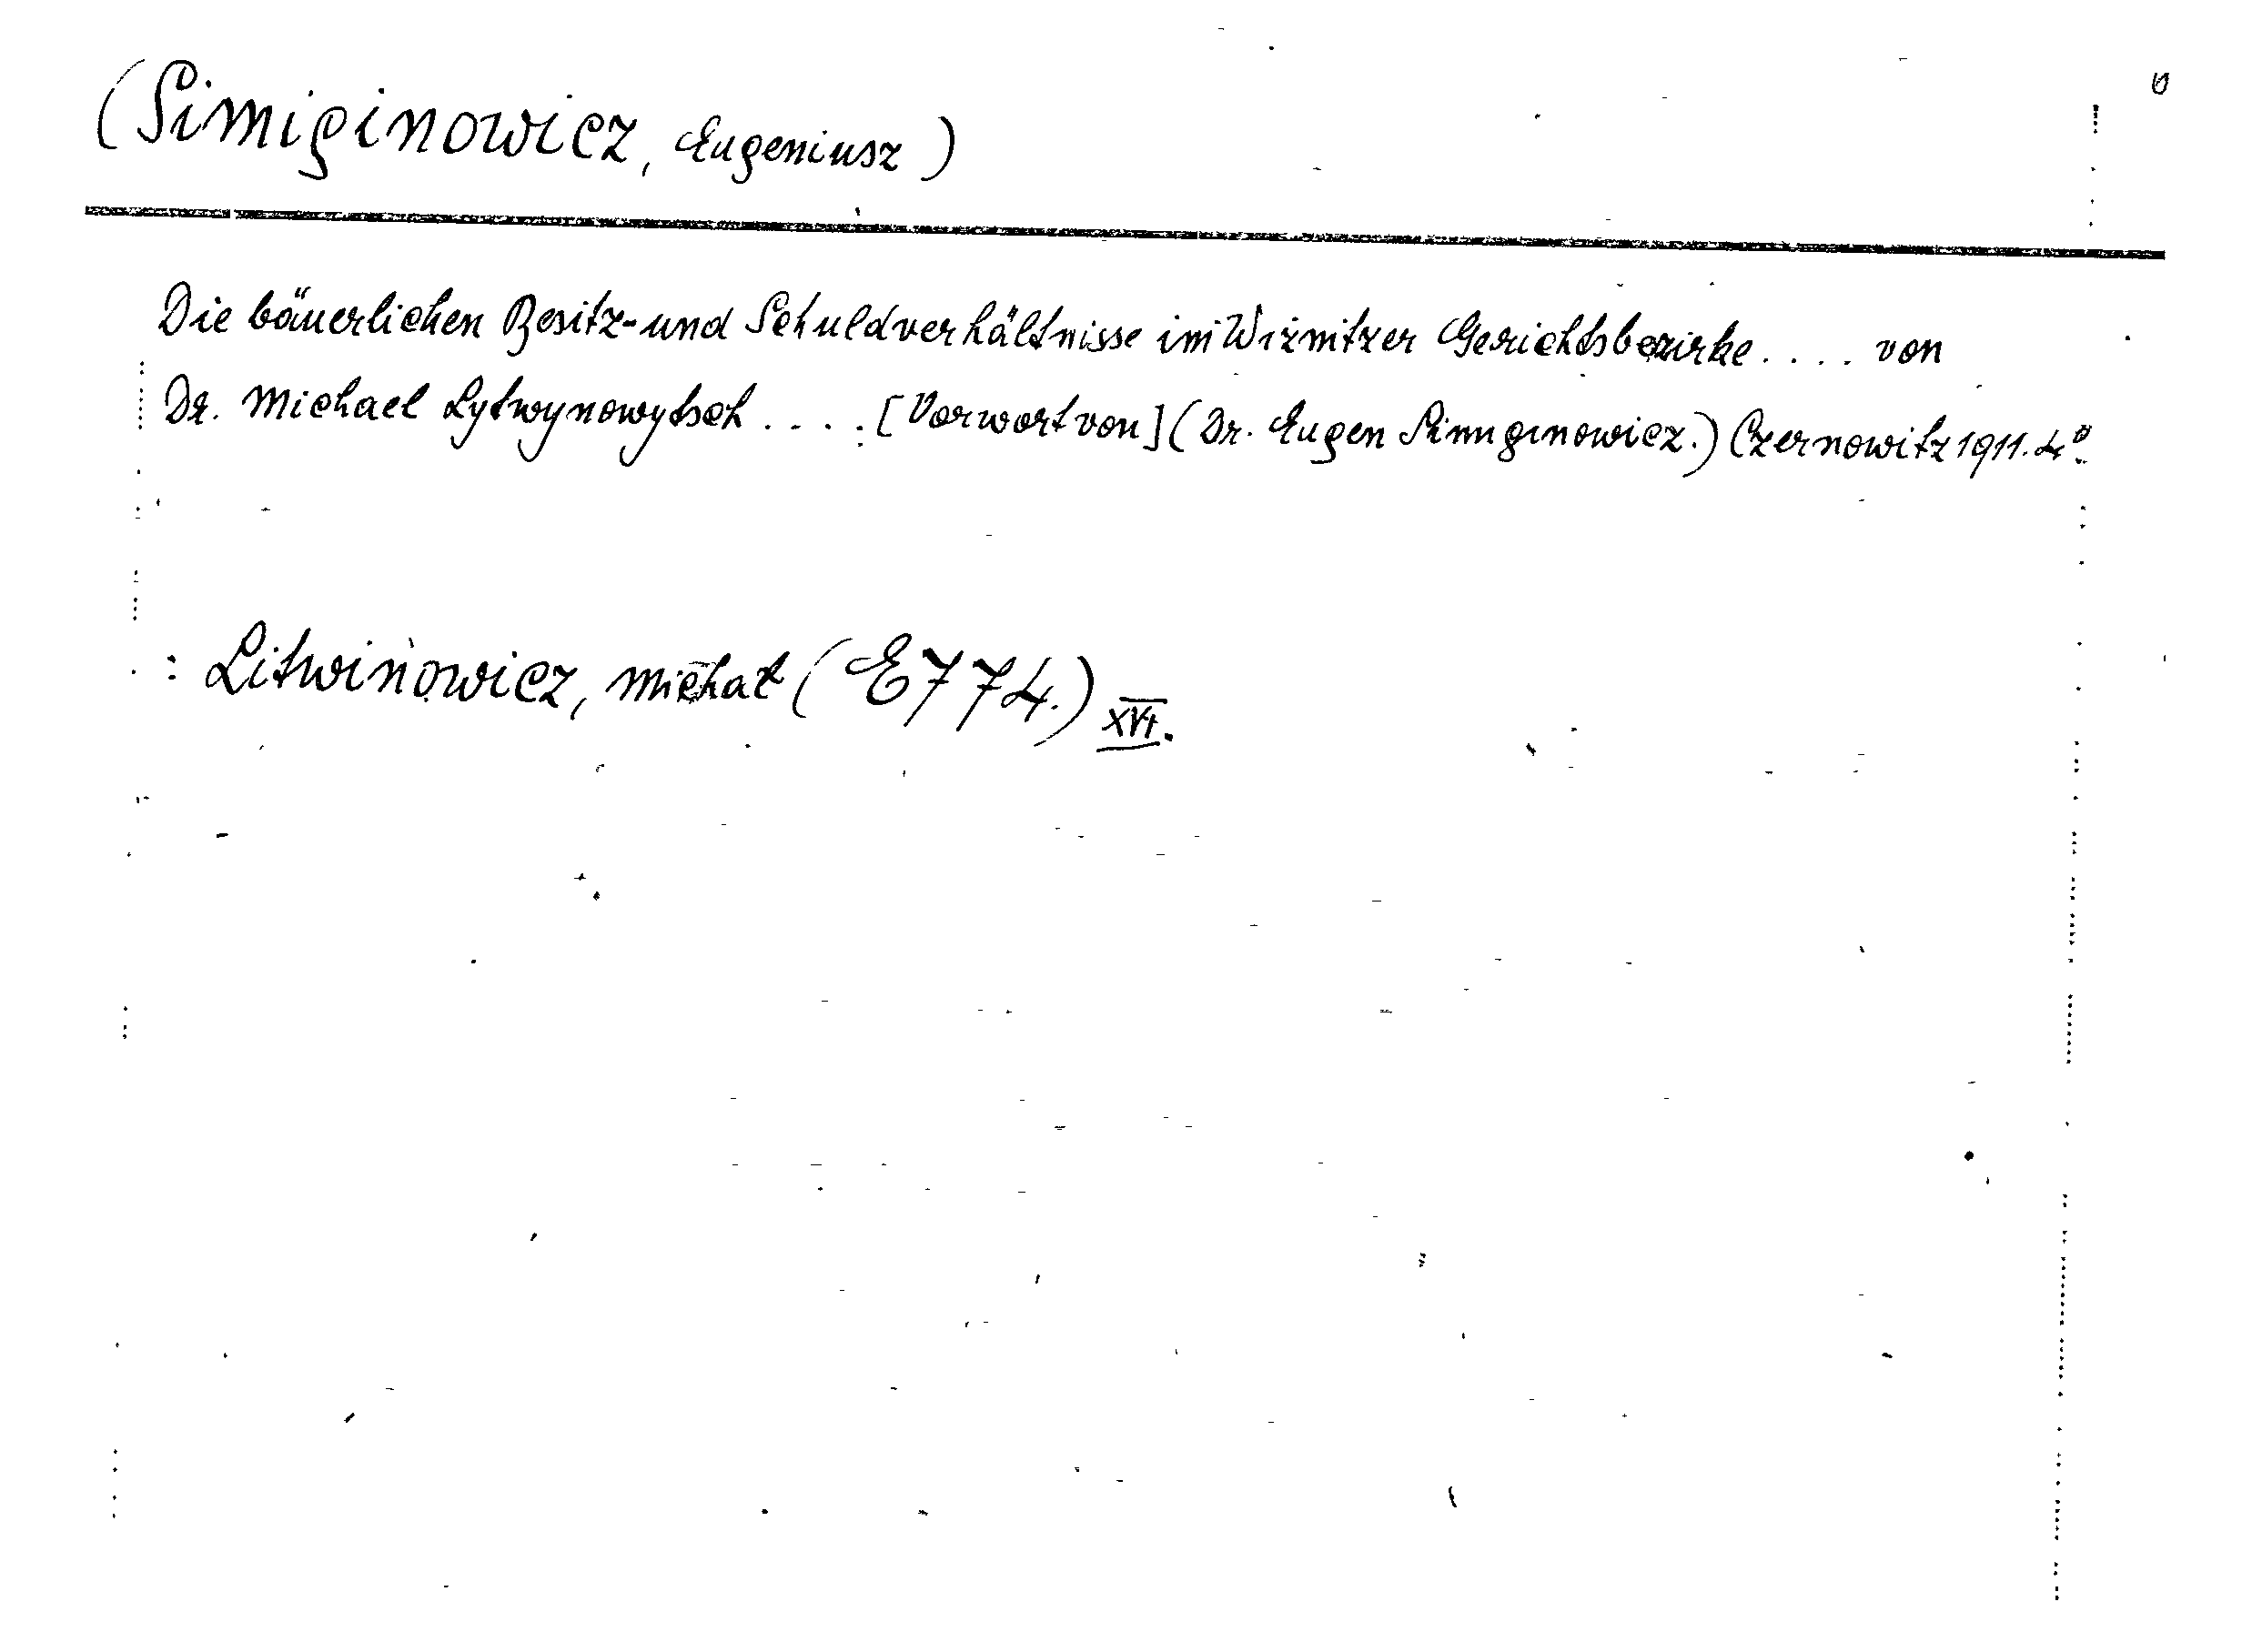 (Simiginowicz, Eugeniusz)
Die bäuerlichen Besitz- und Schuldverhältnisse im Wiżnitzer Gerichtsbezirke . . . . von
Dr. Michael Lytwynowytsch . . . . : [Vorwort von] (Dr. Eugen Simiginowicz.) Czernowitz 1911. 4º.
: Litwinowicz, Michał (E 774.) XVI.